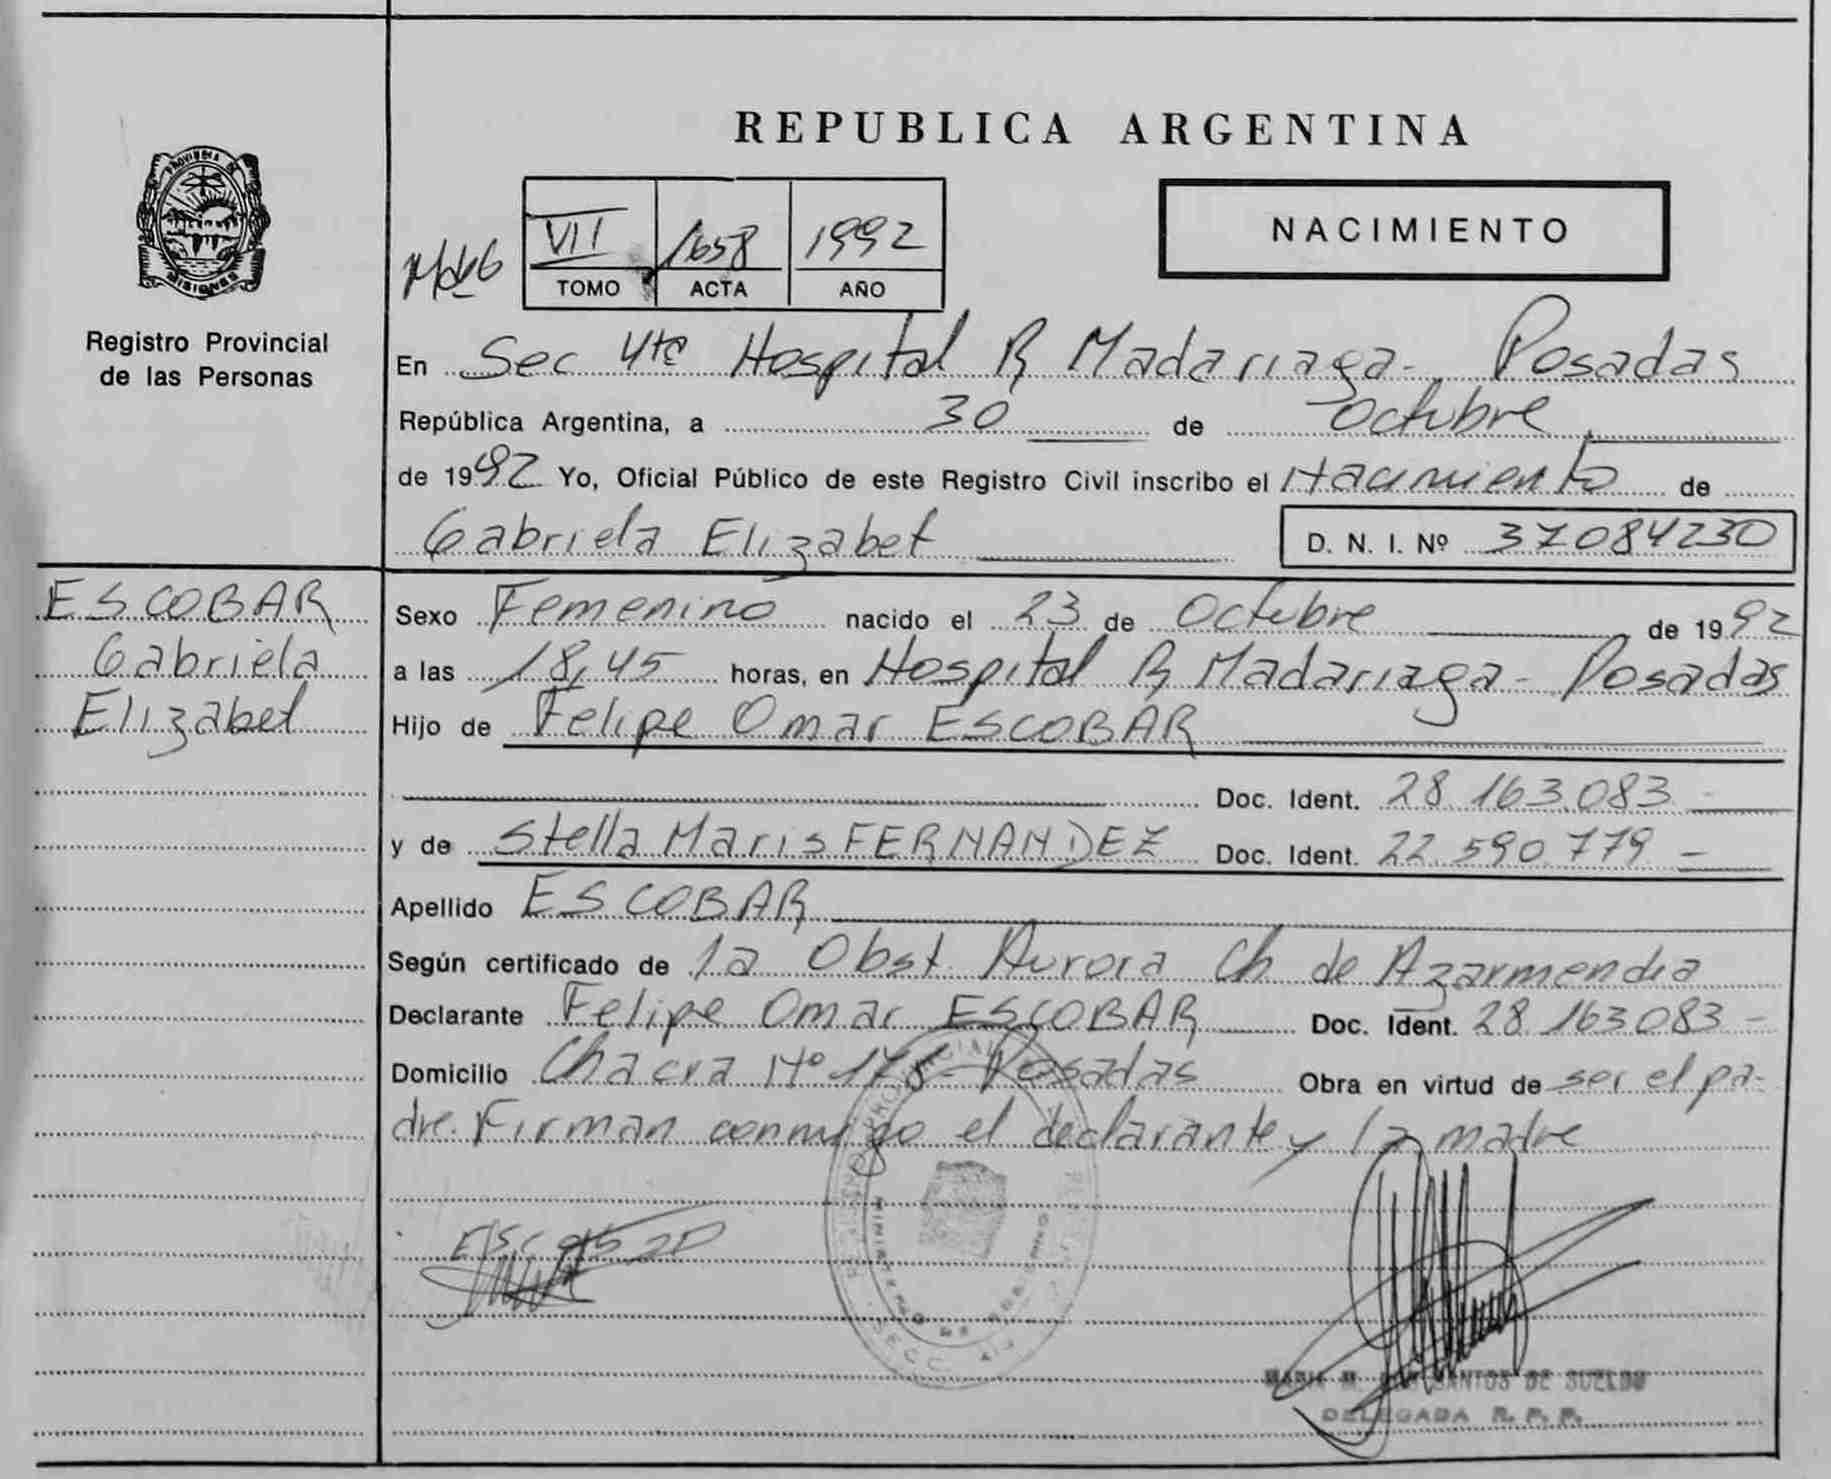 REPUBLICA ARGENTINA
PROVINCIA DE
MISIONES
Registro Provincial
de las Personas
VII 1658 1992
TOMO ACTA AÑO
NACIMIENTO
En Sec 4ta Hospital R Madariaga - Posadas
República Argentina, a 30 de octubre
de 1992 Yo, Oficial Público de este Registro Civil inscribo el Nacimiento de
Gabriela Elizabet D. N. I. Nº 37084230
ESCOBAR
Gabriela
Elizabet
Sexo Femenino nacido el 23 de Octubre de 1992
a las 18,45 horas, en Hospital R Madariaga - Posadas
Hijo de Felipe Omar ESCOBAR
Doc. Ident. 28.163.083 -
y de Stella Maris FERNANDEZ Doc. Ident. 22.590.779 -
Apellido ESCOBAR
Según certificado de la Obst. Aurora Ch de Azarmendia
Declarante Felipe Omar ESCOBAR Doc. Ident. 28.163.083 -
Domicilio Chacra Nº Posadas Obra en virtud de ser el pa-
dre. Firman conmigo el declarante y la madre
MINISTERIO DE GOBIERNO
SECC.
MARIA M. SANTOS DE SUELDO
DELEGADA R. P. P.